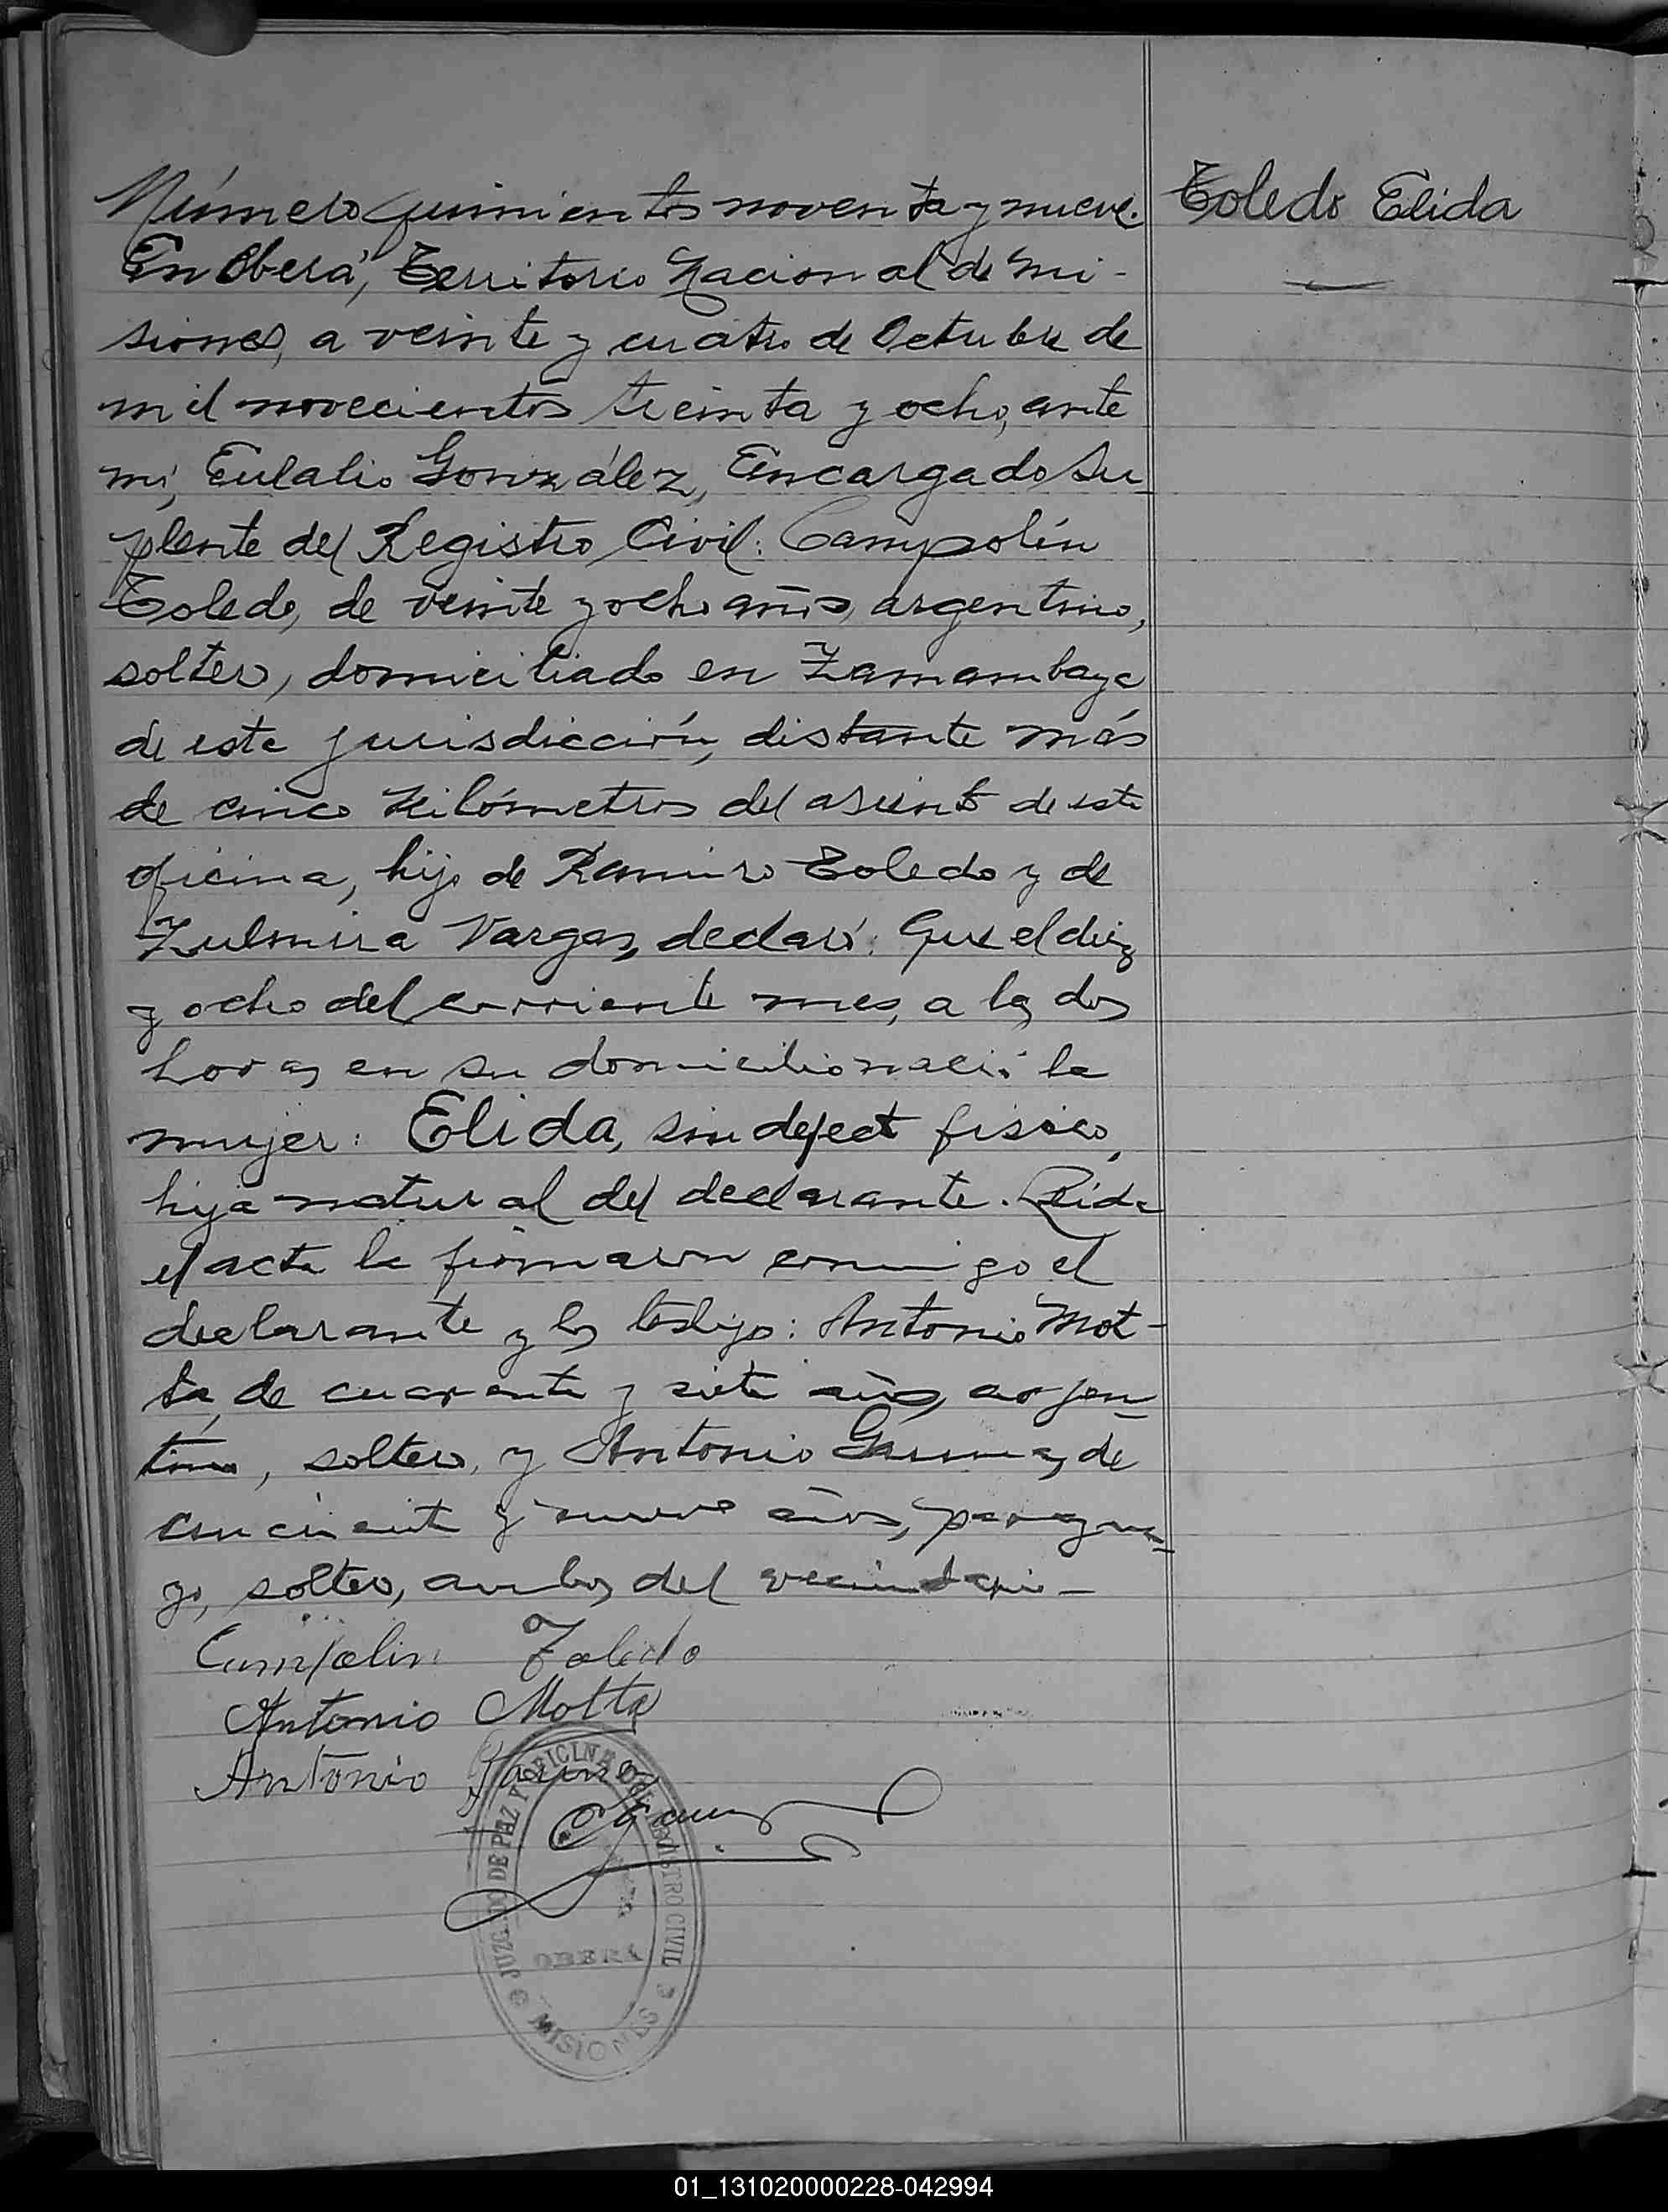 Número quinientos noventa y nueve.
Toledo Elida
En Oberá, Territorio Nacional de Mi-
siones, a veinte y cuatro de Octubre de
mil novecientos treinta y ocho, ante
mí, Eulalio González, Encargado Su-
plente del Registro Civil: Campolín
Toledo, de veinte y ocho años, argentino,
soltero, domiciliado en Zamambaya
de esta jurisdicción, distante más
de cinco kilómetros del asiento de esta
oficina, hijo de Ramiro Toledo y de
Zulmira Vargas, declaró: Que el diez
y ocho del corriente mes, a las dos
horas en su domicilio nació la
mujer: Elida, sin defecto fisico,
hija natural del declarante. Leida
el acta la firmaron conmigo el
declarante y los testigos: Antonio Mot-
ta, de cuarenta y siete años, argen-
tino, soltero, y Antonio de
y nueve años, paragua-
yo, soltero, ambos del vecindario-
Campolin Toledo
Antonio Motta
Antonio
JUZGADO DE PAZ Y OFICINA DEL REGISTRO CIVIL
OBERA
MISIONES
01_131020000228-042994